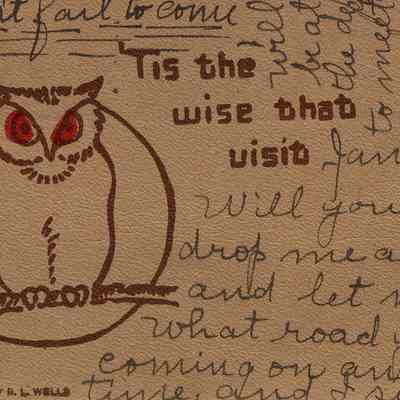 fail to come
'Tis the
wise that
visit
Jan
Will you
drop me a
and let
What road
coming on an
time, and I s
well
be at
the de
to meet
B. L. WELLS